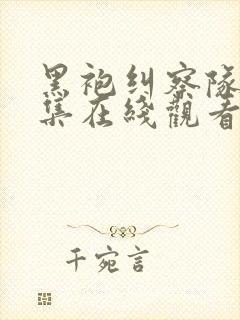 黑袍纠察队
集在綫觀看
千宛言